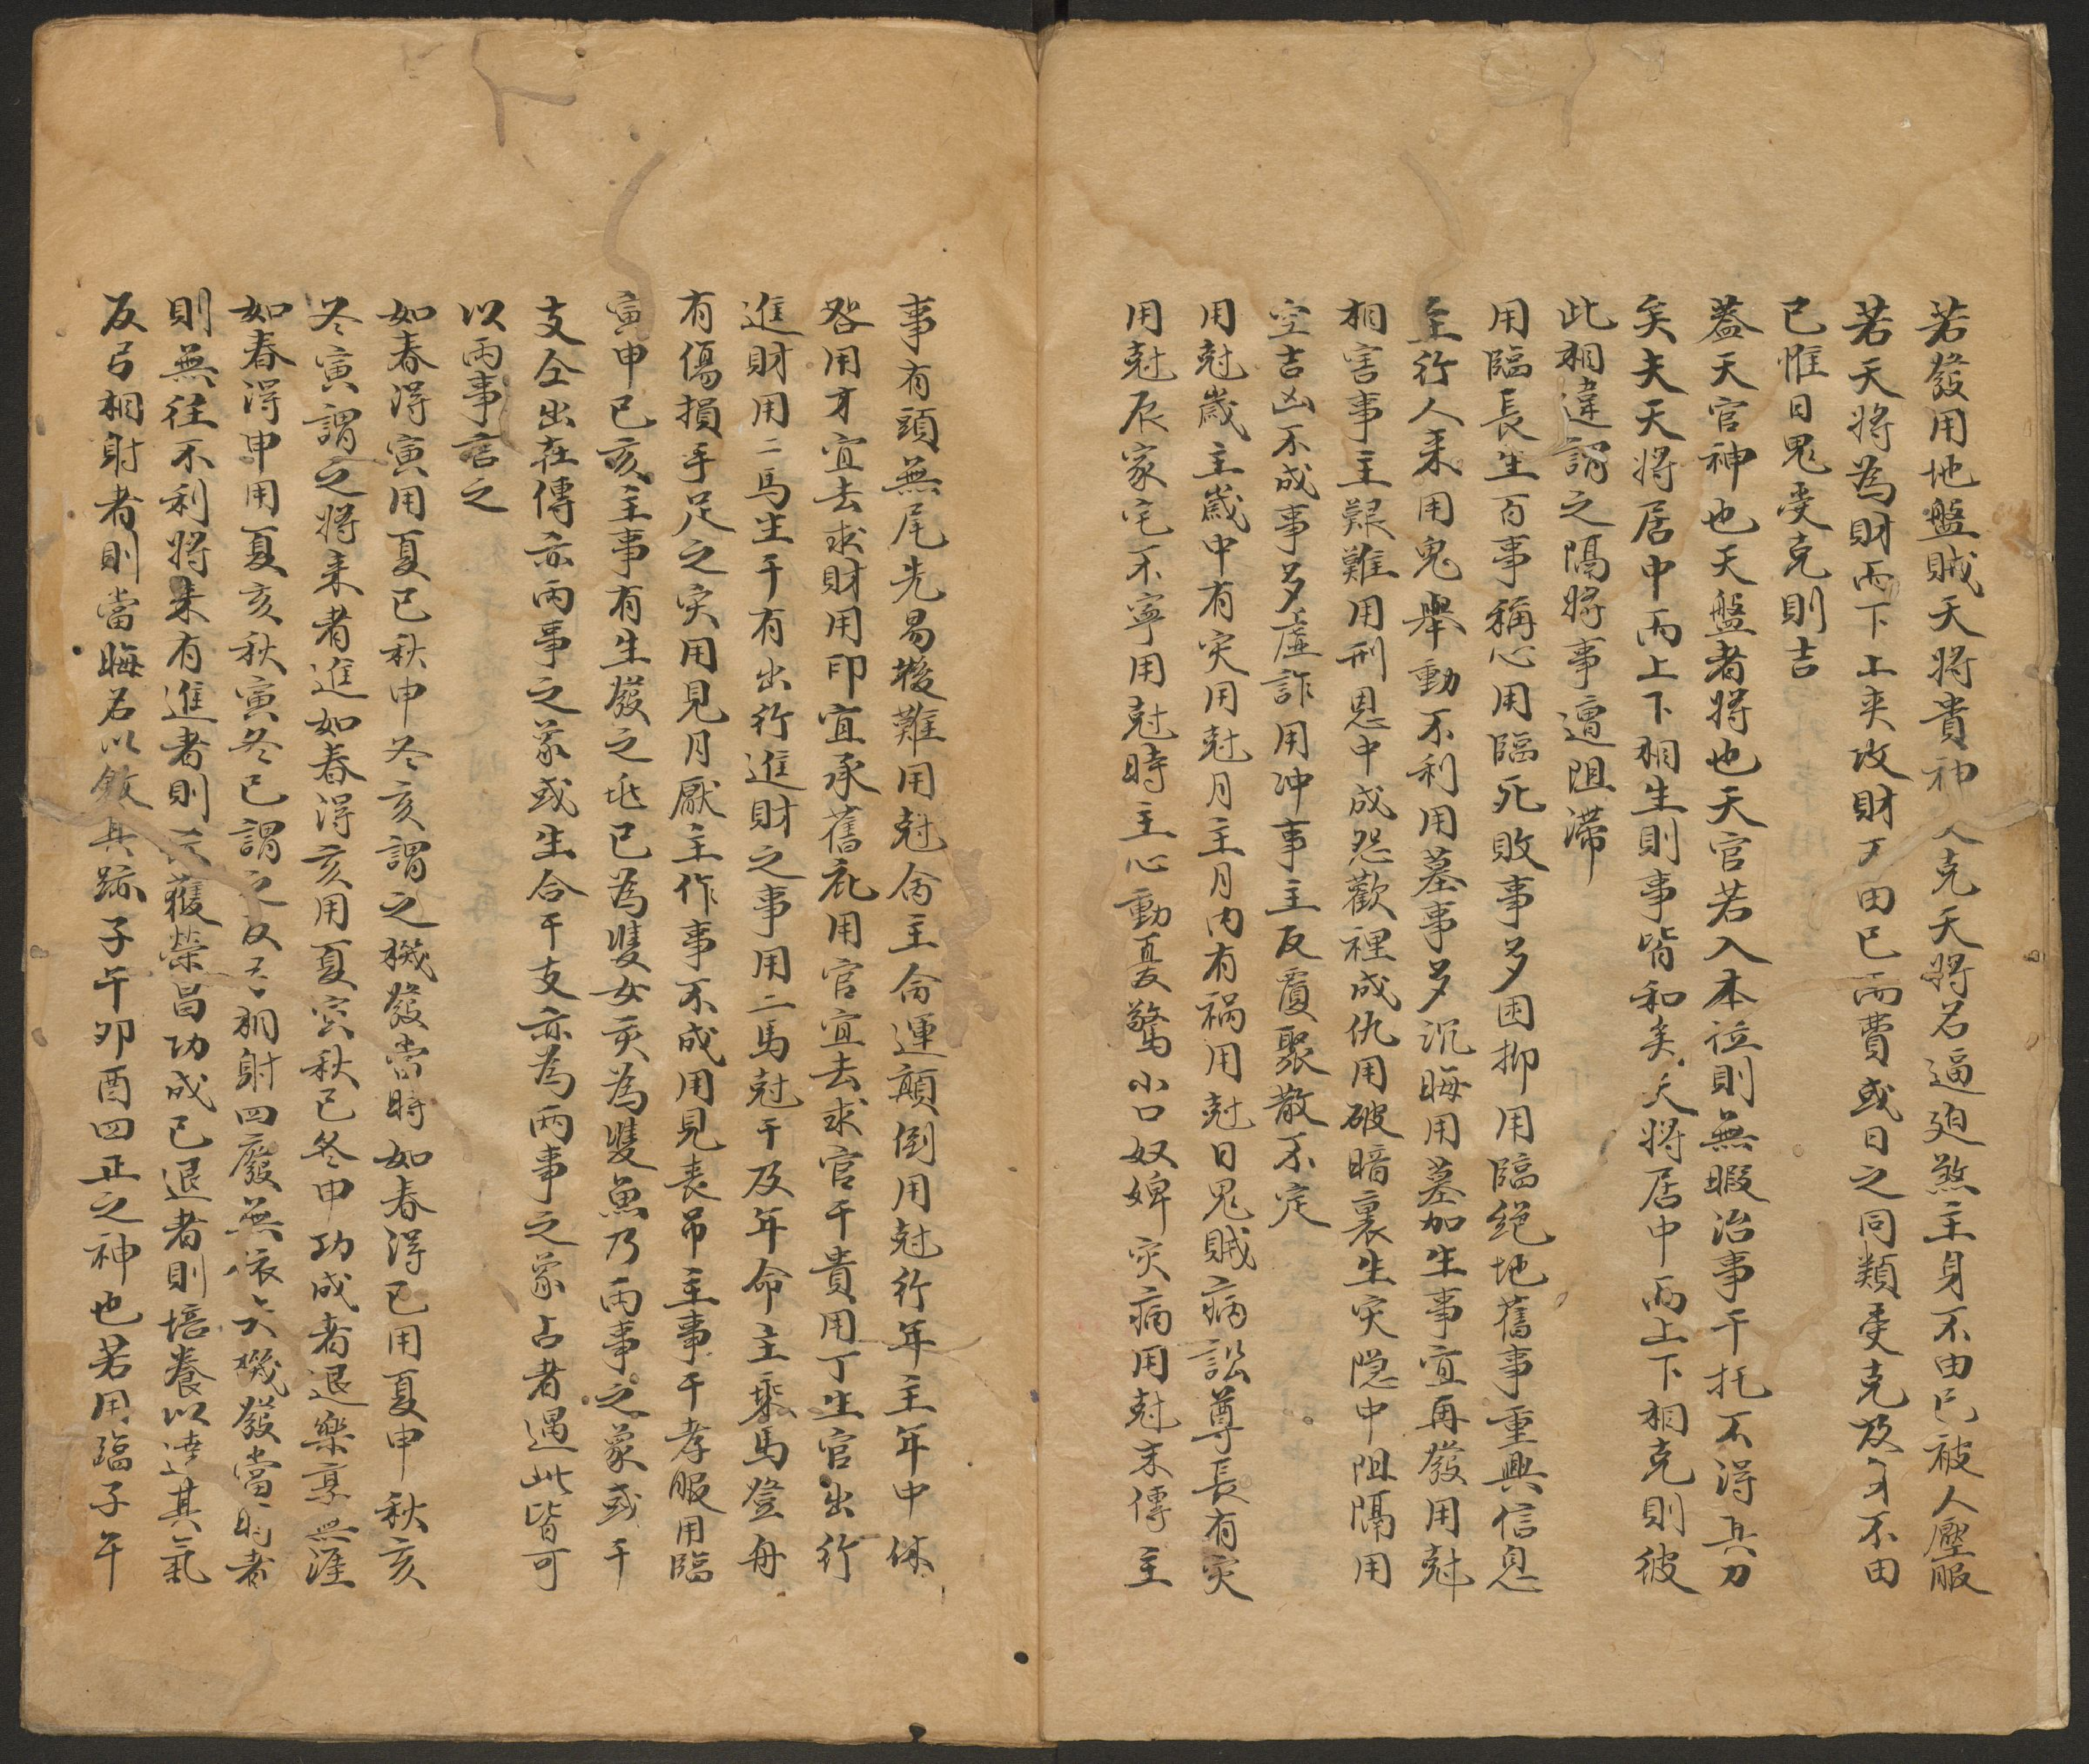 若發用地盤賊天將貴神人克天將名逼迫煞主身不由已被人壓服
若天將為財而下上夾攻財不由已而費或日之同類受克及身不由
已惟日鬼受克則吉
蓋天官神也天盤者將也天官若入本位則無暇治事干托不得其力
矣夫天將居中而上下相生則事皆和矣夭將居中而上下相克則彼
此相違謂之隔將事遭阻滯
用臨長生百事稱心用臨死敗事多困抑用臨絕地舊事重興信息
至行人來用鬼舉動不利用墓事多沉晦用墓加生事宜再發用尅
相害事主艱難用刑恩中成怨歡裡成仇用破暗裏生灾隐中阻隔用
空吉凶不成事多虛詐用冲事主反覆聚散不定
用尅歲主歲中有灾用尅月主月内有禍用尅日鬼賊病訟尊長有灾
用尅辰家宅不寧用尅時主心動憂驚小口奴婢灾病用尅末傳主
事有頭無尾先易後難用尅命主命運顛倒用尅行年主年中休
咎用才宜去求財用印宜承舊庇用官宜去求官干貴用丁生官出行
進財用二馬生干有出行進財之事用二馬尅干及年命主乘馬登舟
有傷損手足之灾用見月厭主作事不成用見丧吊主事干孝服用臨
寅申巳亥主事有生發之兆巳為雙女亥為雙魚乃兩事之象或干
支仝出在傳亦兩事之象或生合干支亦為兩事之象占者遇此皆可
以兩事言之
如春得寅用夏巳秋申冬亥謂之機發當時如春得巳用夏申秋亥
冬寅謂之將來者進如春得亥用夏寅秋巳冬申功成者退樂享無涯
如春得申用夏亥秋寅冬巳謂之反弓相射四廢無依大機發當时者
則無往不利將来有進者則獲榮昌功成已退者則培養以達其氣
反弓相射者則當晦名以斂其跡子午夘酉四正之神也若用臨子午